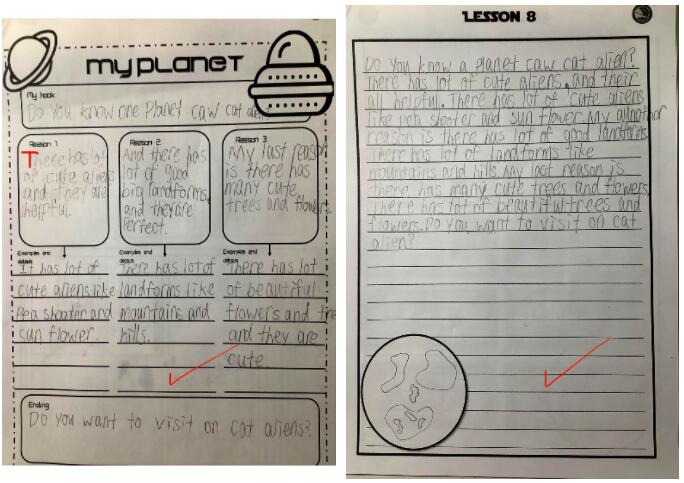 my planet
My hook:
Do you know one Planet caw cat alien?
Reason 1
There has lot
of cute aliens
and they are
helpful.
Reason 2:
And there has
lot of good
big landforms,
and they are
Perfect.
Reason 3:
My last reason
is there has
many cute
trees and flowers.
Examples and
details
It has lot of
cute aliens like
Pea shooter and
sun flower.
Examples and
details
There has lot of
landforms like
mountains and
hills.
Examples and
details
There has lot
of beautiful
flowers and tre
and they are
cute.
Ending
Do you want to visit on cat aliens?
LESSON 8
Do you know a planet caw cat alien?
There has lot of cute aliens, and their
all helpful. There has lot of cute aliens
like pea shooter and sun flower. My
reason is there has lot of good landforms.
There has lot of landforms like
mountains and hills. My last reason is
there has many cute trees and flowers.
There has lot of beautiful trees and
flowers. Do you want to visit on cat
alien?